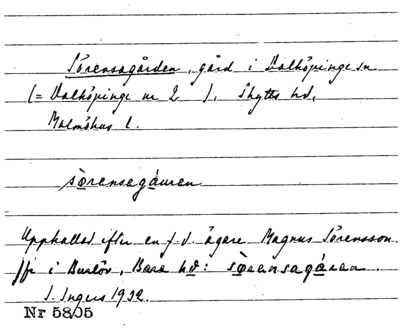 Sörensagården, gård i Dalköpinge sn
(= Dalköpinge nr 2 ), Skytts hd,
Malmöhus l.
sörensagården
Uppkallad efter en f.d. ägare Magnus Sörensson.
Jfr i Burlöv, Bara hd: 
I. Ingers 1932.
Nr 5805